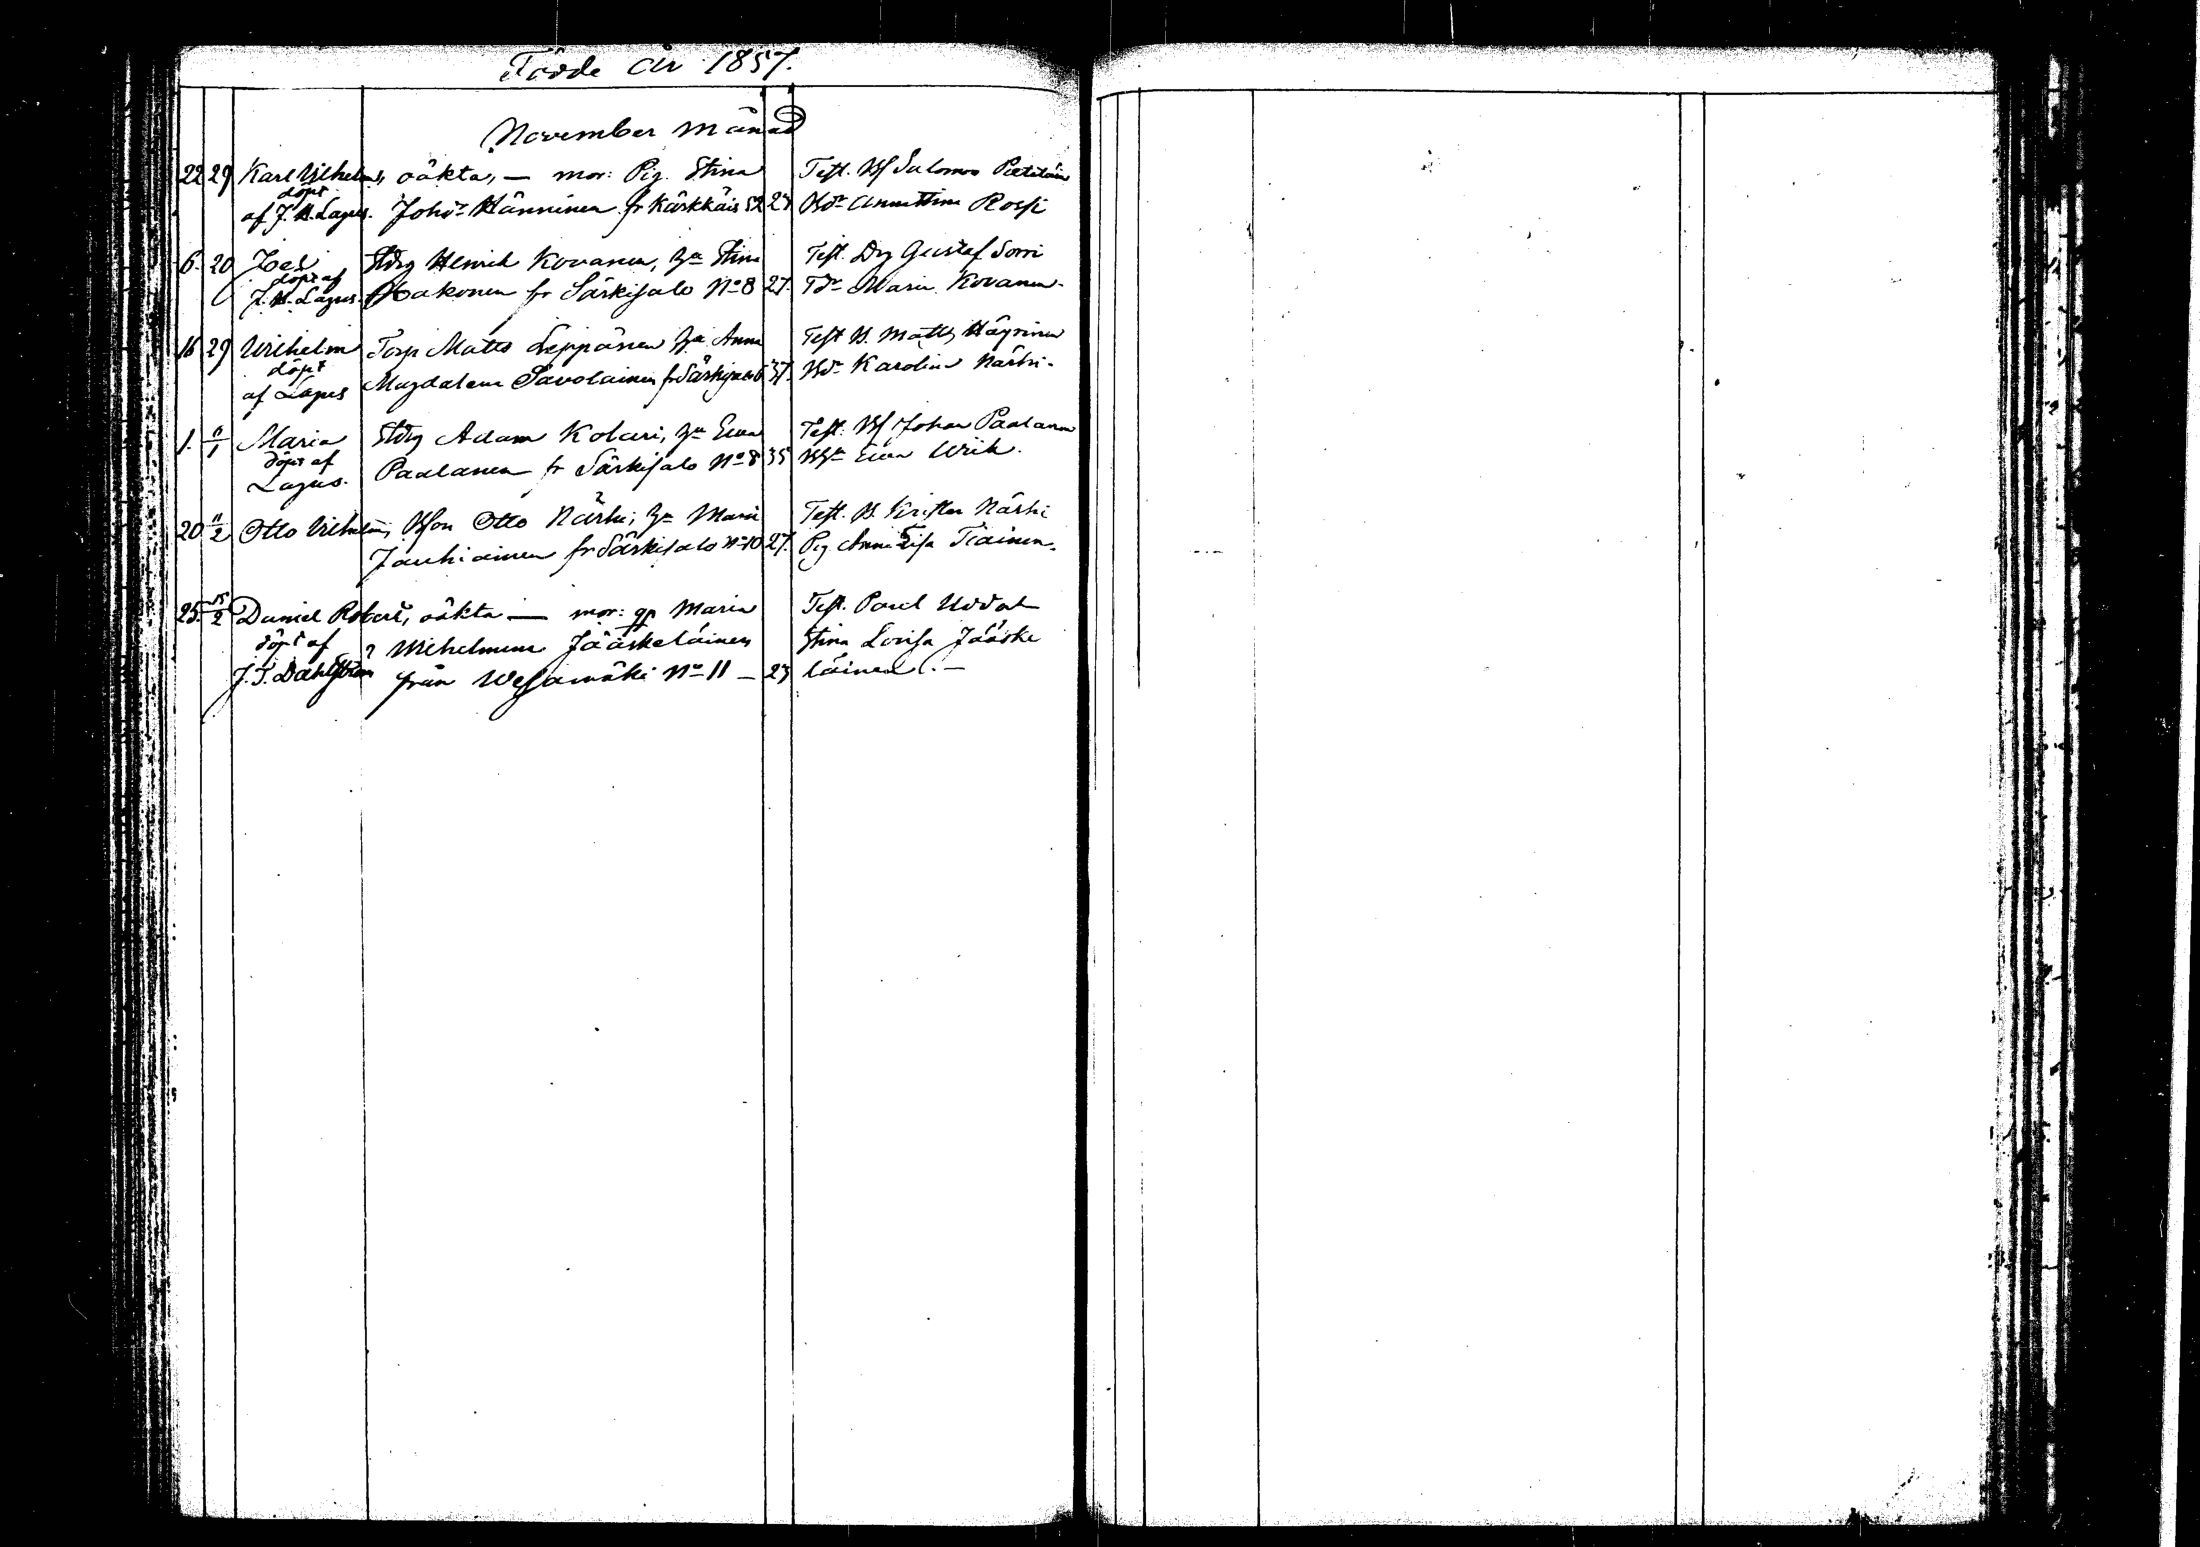 Födde år 1857.
November månad
22 29 Karl Vilhelm, oäkta, — mor: Pig. Stina Test. Bf Salomo Pietiläin
döpt
af J. H. Lagus. Joh:dr Hänninen fr Kärkkäis 52 23 Bdr Annastina Rossi
6. 20 Joel Stdrg Henrik Kovanen, Ha Stina Test. Drg Gustaf Sorri
döpt af
J. H. Lagus. Hakonen fr Särkisalo No 8 27. Tdr Maria Kovanen.
16 29 Wilhelm Torp Matts Leppänen Ha Anna Test B. Matts Häyrinen
döpt
af Lagus Magdalena Savolainen fr Särkisalo 6 37. Bdr Karolina Närhi.
1. 6/1 Maria Stdrg Adam Kolari, Ha Ewa Test. Bf Johan Paalanen
döpt af
Lagus. Paalanen fr Särkisalo No 8 35 Ewa Wiik.
20 11/2 Otto Vilhelm, Bson Otto Närhi, Ha Maria Test. B. Krister Närhi
Jauhiainen fr Särkisalo No 10 27. Pig Anna Lisa Tiainen.
25. 15/2 Daniel Robert, oäkta — mor: qp Maria Test. Paul
döpt af Wilhelmina Jääskeläinen Stina Lovisa Jääske
J. F. Dahlström från Wesamäki No 11 — 23 läinen. —